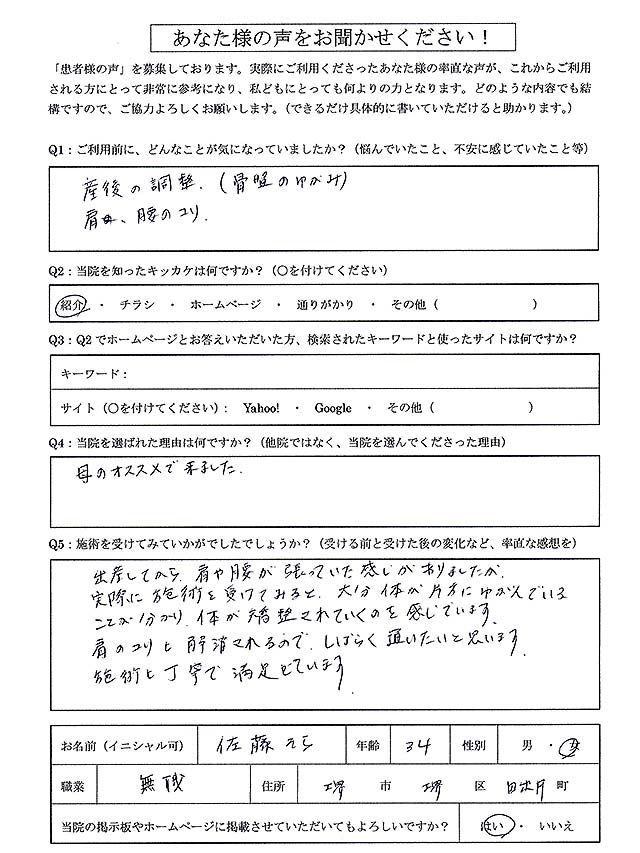 あなた様の声をお聞かせください！
「患者様の声」を募集しております。実際にご利用くださったあなた様の率直な声が、これからご利用
される方にとって非常に参考になり、私どもにとっても何よりの力となります。どのような内容でも結
構ですので、ご協力よろしくお願いします。（できるだけ具体的に書いていただけると助かります。）
Q1：ご利用前に、どんなことが気になっていましたか？（悩んでいたこと、不安に感じていたこと等）
産後の調整.（骨盤のゆがみ）
肩、腰のコリ.
Q2：当院を知ったキッカケは何ですか？（〇を付けてください）
紹介 ・ チラシ ・ ホームページ ・ 通りがかり ・ その他（ ）
Q3：Q2でホームページとお答えいただいた方、検索されたキーワードと使ったサイトは何ですか？
キーワード：
サイト（〇を付けてください）： Yahoo! ・ Google ・ その他（ ）
Q4：当院を選ばれた理由は何ですか？（他院ではなく、当院を選んでくださった理由）
母のオススメで来ました.
Q5：施術を受けてみていかがでしたでしょうか？（受ける前と受けた後の変化など、率直な感想を）
出産してから、肩や腰が張っていた感じがありましたが、
実際に施術を受けてみると、大分体が片方にゆがんでいる
ことが分かり、体が調整されていくのを感じています.
肩のコリも解消されるので、しばらく通いたいと思います.
施術も丁寧で満足しています.
お名前（イニシャル可） 佐藤 年齢 34 性別 男 ・ 女
職業 無職 住所 堺 市 堺 区 田出井 町
当院の掲示板やホームページに掲載させていただいてもよろしいですか？ はい ・ いいえ